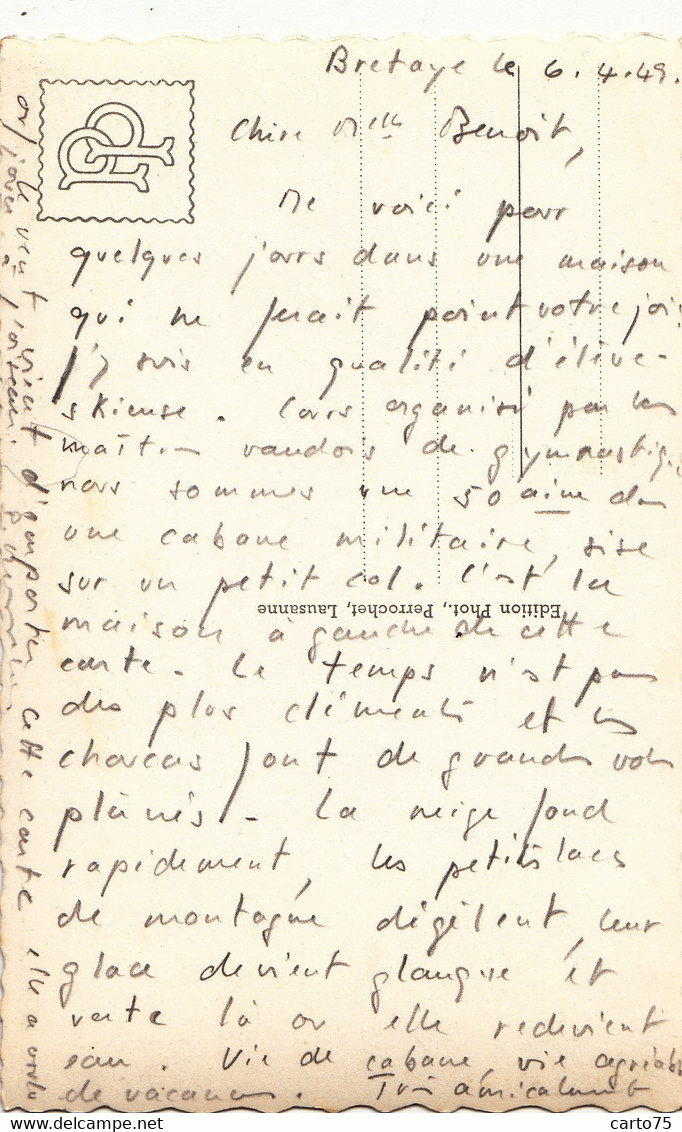 Bretaye le 6.4.49.
Chère Melle Benoit,
Me voici pour
quelques jours dans une maison
qui ne ferait point votre joie
J'y suis en qualité d'élève-
skieuse. Cours organisé par les
maîtres vaudois de gymnastique,
nous sommes une 50aine dans
une cabane militaire, sise
sur un petit col. C'est la
Edition Phot., Perrochet, Lausanne
maison à gauche de cette
carte. Le temps n'est pas
des plus cléments et les
choucas font de grands vols
planés. La neige fond
rapidement, les petits lacs
de montagne dégèlent, leur
glace devient glauque et
verte là où elle redevient
eau. Vie de cabane, vie agréable
de vacances. Très amicalement
le vent vient d'emporter cette carte elle a voulu
jouer à l'oiseau.
www.delcampe.net
carto75